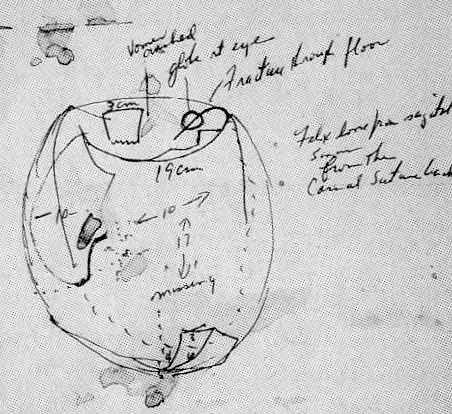 vomer
crushed
globe rt eye
Fracture through floor
3 cm
19 cm
Falx loose from sagital
sinus
from the
Coronal Suture back
10
10
17
missing